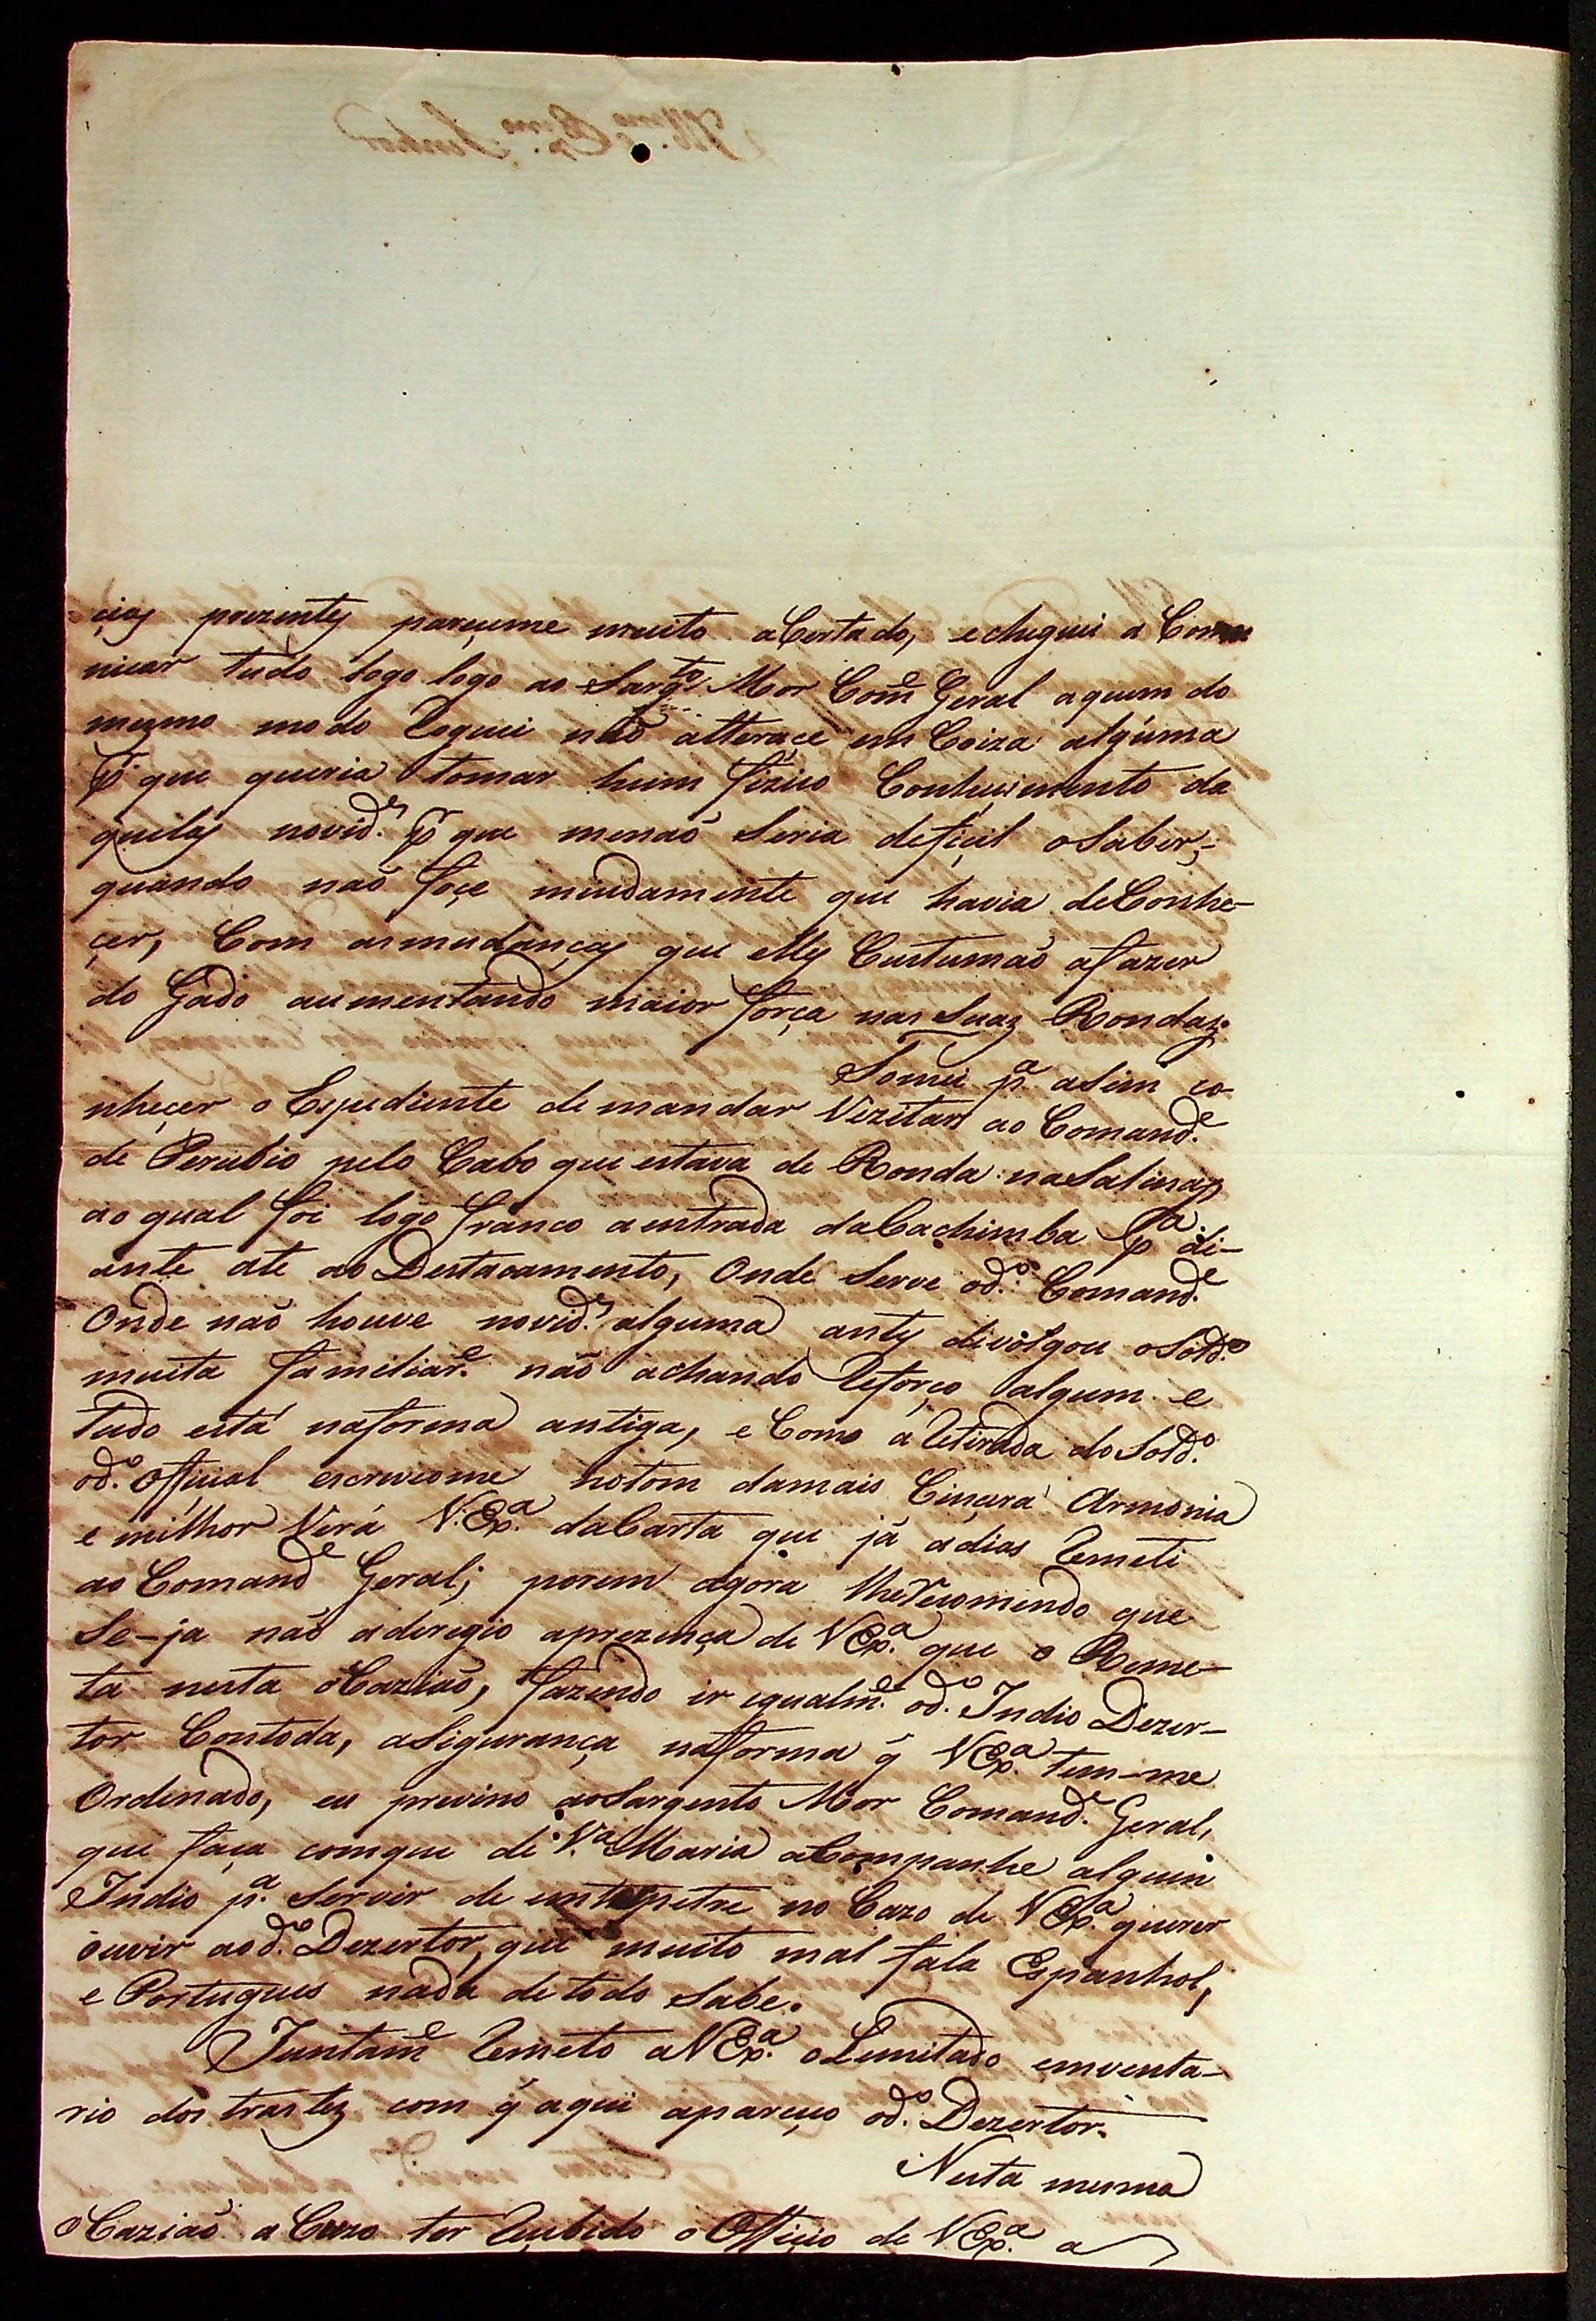 cias prezentes pareçeme muito aCertado, echeguei a Comu
nicar tudo logo logo ao Sargto Mor Come Geral aquem do
mezmo modo Roguei não alteraçe em Coiza algúma
pr que queria tomar hum fizico Conheçimento da
quelas novides pr que menaõ Seria defiçil oSaber,
quando naõ foçe miudamente que havia deConhe-
çer, Com asmudanças que elles Custumaõ afazer
do Gado aumentando maior força nas Suas Rondas.
Tomei pa aSim co-
nheçer o Expediente de mandar Vizitar ao Comande
de Perubio pelo Cabo que estava de Ronda naSalinas,
ao qual foi logo franco aentrada daCachimba pa di-
ante ate ao Destacamento, Onde Serve odo Comande
Onde naõ houve novides alguma antes divolgou oSoldo
muita familiare não achando Reforço algum e
Tudo está naforma antiga, eComo a Retirada do Soldo
odo Official escreveome notom damais Cinçera Armonia
e milhor Verá V.Exa daCarta que já adias Remeti
ao Comande Geral; porem agora lheRecomendo que
Se-ja não aderegio aprezença de VExa que o Reme-
ta nesta oCaziaõ, fazendo ir igualme odo Indio Dezer-
tor Contoda, aSigurança naforma q̃ VExa tem-me
Ordinado, eu previno aoSargento Mor Comande Geral,
que faça comque de Va Maria aCompanhe alguin
Indio pa Servir de enterpetre no Cazo de VExa querer
ouvir aodo Dezertor, que muito mal fala Espanhol,
e Portugues nada detodo Sabe.
Juntame Remeto aVExa oLemitado emventa-
rio dos trastes com q̃ aqui apareçeo odo Dezertor.
Nesta mesma
oCaziaõ aCuzo ter Reçebido o Offiçio de VExa a